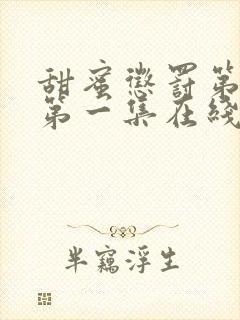 甜蜜惩罚第
第一集在线
半窥浮生